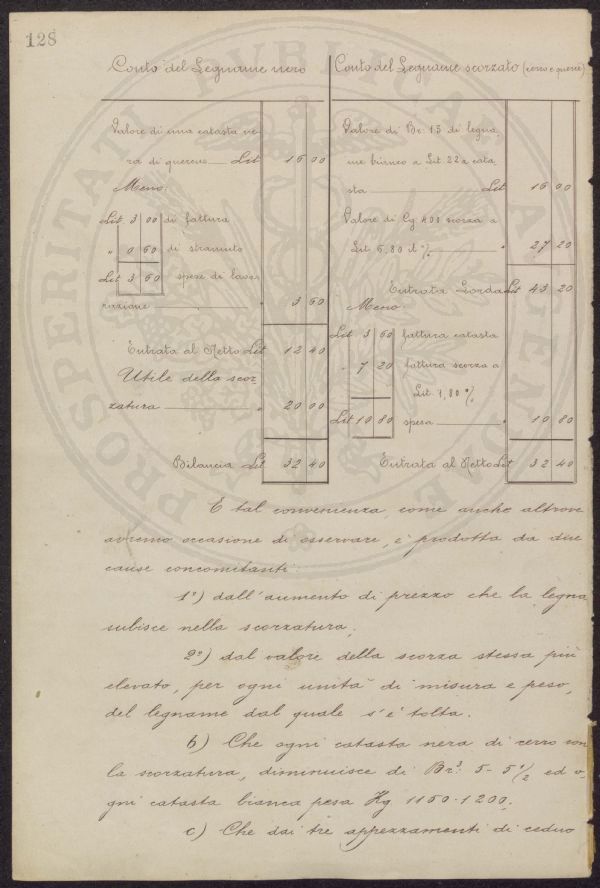 128
Conto del Legname nero
Valore di una catasta ne
ra di querce Lit 16 00
Meno:
Lit 3 00 di fattura
" 0 60 di stramuto
Lit 3 60 spese di lavo
razione " 3 60
Entrata al Netto Lit 12 40
Utile della scor
zatura " 20 00
Bilancia Lit 32 40
Conto del Legname scorzato (cerro e querce)
Valore di Br. 15 di legna
me bianco a Lit. 22 a cata
sta Lit 16 00
Valore di Cg 400 scorza a
Lit 6,80 il % " 27 20
Entrata Lorda Lit 43 20
Meno:
Lit 3 60 fattura catasta
" 7 20 fattura scorza a
Lit. 1,80 %
Lit 10 80 spesa " 10 80
Entrata al Netto Lit 32 40
E tal convenienza, come anche altrove
avremo occasione di osservare, è prodotta da due
cause concomitanti:
1°) dall'aumento di prezzo che la legna
subisce nella scorzatura;
2°) dal valore della scorza stessa più
elevato, per ogni unità di misura e peso,
del legname dal quale s'è tolta.
b) Che ogni catasta nera di cerro con
la scorzatura, diminuisce di Br.³ 5 - 5 1/2 ed o-
gni catasta bianca pesa Kg 1150-1200;
c) Che dai tre appezzamenti di ceduo
PROSPERITATI PVBLICAE AVGENDAE